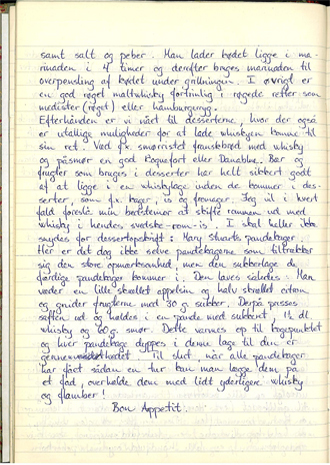 samt salt og peber. Man lader kødet ligge i ma-
rinaden i 4 timer og derefter bruges marinaden til
overpensling af kødet under grillningen. I øvrigt er
en god røget maltwhisky fortrinlig i røgede retter som
medister (røget) eller hamburgerryg.
Efterhånden er vi nået til desserterne, hvor der også
er utallige muligheder for at lade whiskyen komme til
sin ret. Ved f.x. smørristet franskbrød med whisky
og påsmør en god Roquefort eller Danablu. Bær og
frugter som bruges i desserter har helt sikkert godt
af at ligge i en whiskylage inden de kommer i des-
serter, som f.x. kager, is og fromager. Jeg vil i hvert
fald foreslå min bedstemor at skifte rommen ud med
whisky i hendes svedske-rom-is. I skal heller ikke
snydes for dessertopskrift: Mary Stuarts pandekager.
Her er det dog ikke selve pandekagerne som tiltrækker
sig den store opmærksomhed, men den sukkerlage de
færdige pandekager kommer i. Den laves således: Man
river en lille skrællet appelsin og halv skrællet citron
og gnider frugterne med 30 g. sukker. Derpå presses
saften ud og hældes i en pande med sukkeret, 1½ dl.
whisky og 60 g. smør. Dette varmes op til kogepunktet
og hver pandekage dyppes i denne lage til den er
gennemvædet. Til slut, når alle pandekager
har fået sådan en tur kan man lægge dem på
et fad, overhælde dem med lidt yderligere whisky
og flambér!
Bon Appetit.